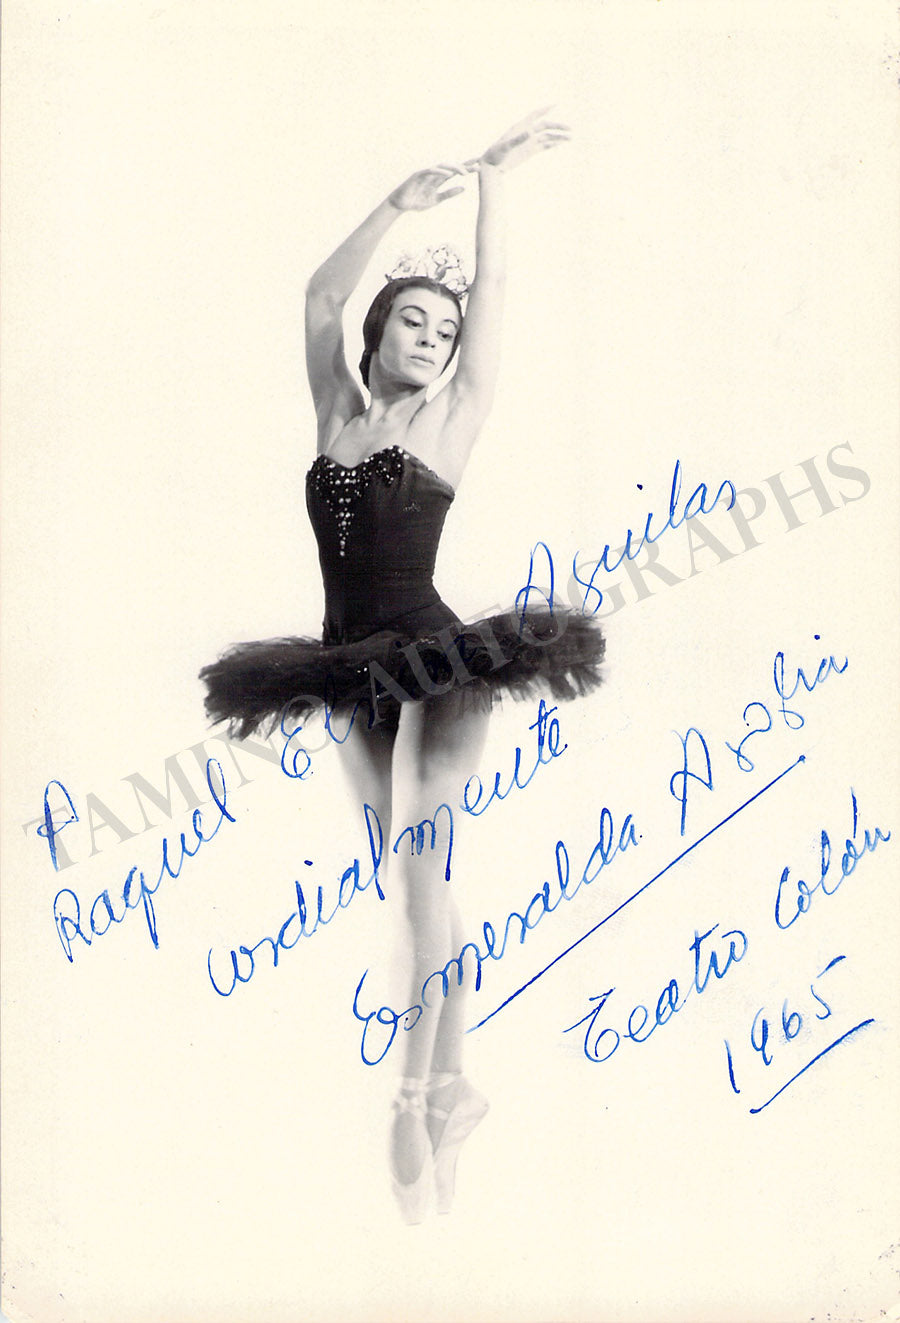 A
Raquel Elsa Aguilar
cordialmente
Esmeralda Agoglia
Teatro Colón
1965
TAMINO AUTOGRAPHS